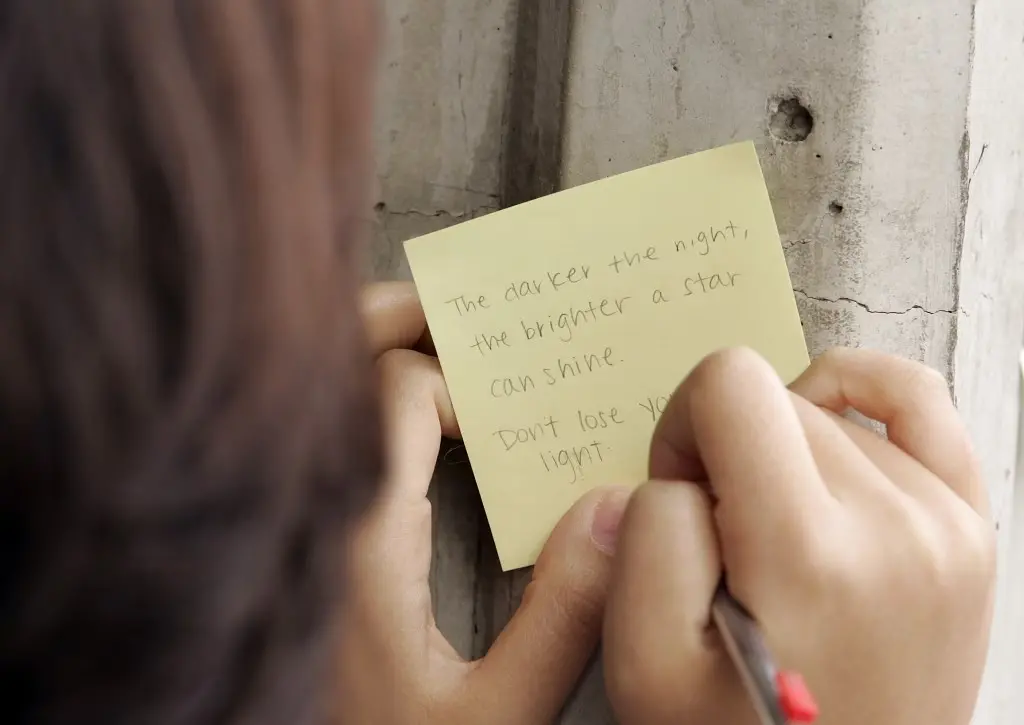 The darker the night,
the brighter a star
can shine.
Don't lose
light.